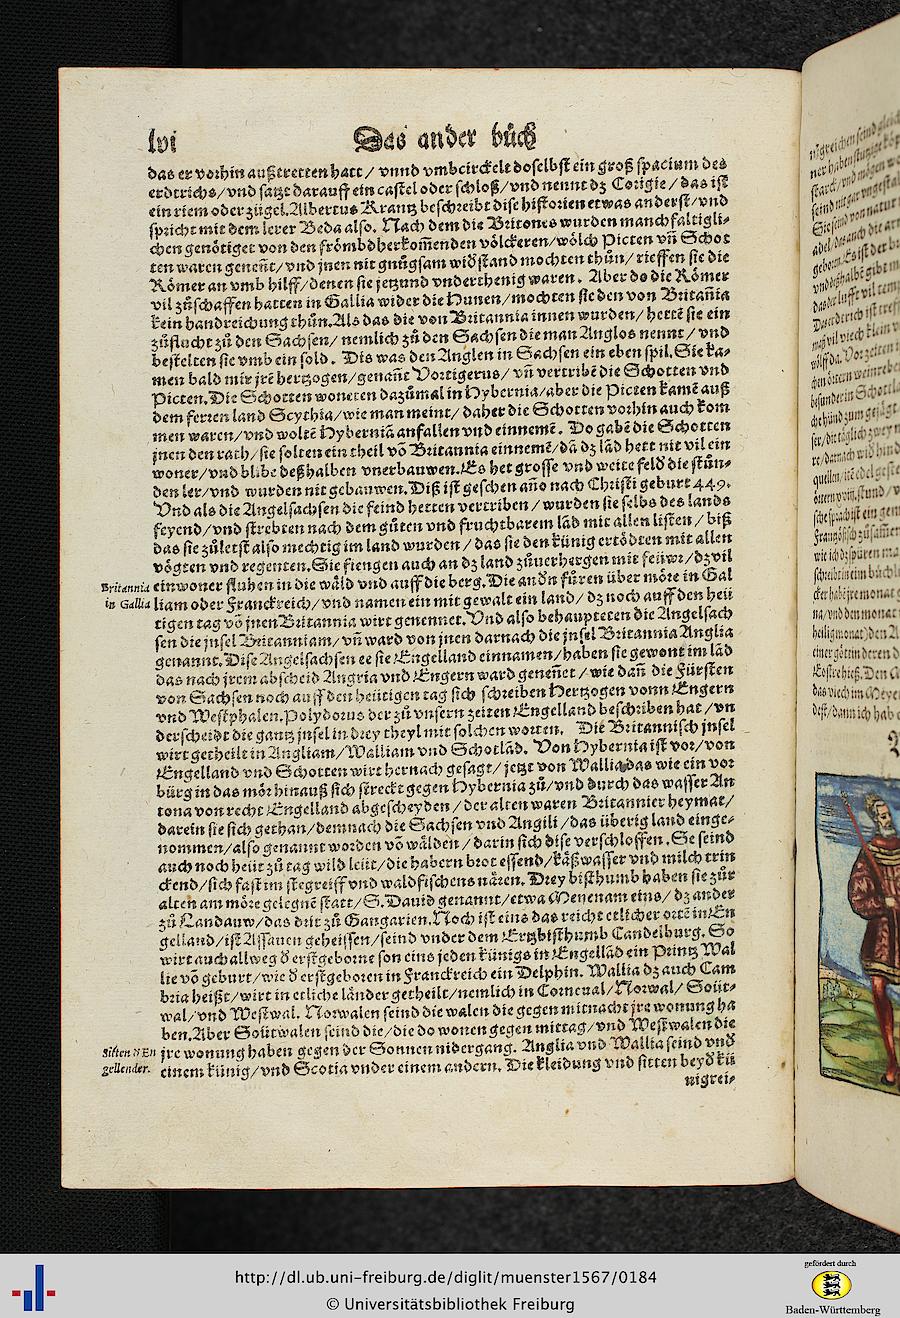 lvi
Das ander bůch
das er vorhin außtretten hatt / vnnd vmbcirckelt doselbst ein groß spacium des
erdtrichs/vnd satzt darauff ein castel oder schloß/vnd nennt dz Corigie/das ist
ein riem oder zügel. Albertus Krantz beschreibt dise historien etwas anderst/vnd
spricht mit dem lerer Beda also. Nach dem die Britones wurden manchfaltigli-
chen genötiget von den frömbdherkom̃enden völckeren/wölch Picten vñ Schot
ten waren geneñt/vnd jnen nit gnůgsam widstand mochten thůn/rieffen sie die
Römer an vmb hilff/denen sie jetzund vnderthenig waren. Aber do die Römer
vil zůschaffen hatten in Gallia wider die Hunen/mochten sie den von Britañia
kein handreichung thůn. Als das die von Britannia innen wurden/hette sie ein
zůflucht zů den Sachsen/nemlich zů den Sachsen die man Anglos nennt/vnd
bestelten sie vmb ein sold. Dis was den Anglen in Sachsen ein eben spil. Sie ka-
men bald mit jrẽ hertzogen/genañt Vortigerus/vñ vertribẽ die Schotten vnd
Picten. Die Schotten woneten dazůmal in Hybernia/aber die Picten kamẽ auß
dem ferren land Scythia/wie man meint/daher die Schotten vorhin auch kom
men waren/vnd woltẽ Hyberniã anfallen vnd einnemẽ. Do gabẽ die Schotten
jnen den rath/sie solten ein theil võ Britannia einnemẽ/dã dz lãd hett nit vil ein
woner/vnd blibe deßhalben vnerbauwen. Es het grosse vnd weite feld die stůn-
den ler/vnd wurden nit gebauwen. Diß ist geschen año nach Christi geburt 449.
Vnd als die Angelsachsen die feind hetten vertriben/wurden sie selbs des lands
feyend/vnd strebten nach dem gůten vnd fruchtbarem lãd mit allen listen/biß
das sie zůletst also mechtig im land wurden/das sie den künig ertödten mit allen
vögten vnd regenten. Sie fiengen auch an dz land zůuerhergen mit feüwr/dz vil
Britannia
in Gallia
einwoner fluhen in die wäld vnd auff die berg. Die andn fůren über möre in Gal
liam oder Franckreich/vnd namen ein mit gewalt ein land/dz noch auff den heü
tigen tag võ jnen Britannia wirt genennet. Vnd also behaupteten die Angelsach
sen die jnsel Britanniam/vñ ward von jnen darnach die jnsel Britannia Anglia
genannt. Dise Angelsachsen ee sie Engelland einnamen/haben sie gewont im lãd
das nach jrem abscheid Angria vnd Engern ward geneñet/wie dañ die Fürsten
von Sachsen noch auff den heütigen tag sich schreiben Hertzogen vonn Engern
vnd Westphalen. Polydorus der zů vnsern zeiten Engelland beschriben hat/vn
derscheidt die gantz jnsel in drey theyl mit solchen worten. Die Britannisch jnsel
wirt getheilt in Angliam/Walliam vnd Schotlãd. Von Hybernia ist vor/von
Engelland vnd Schotten wirt hernach gesagt/jetzt von Wallia/das wie ein vor
bürg in das mör hinauß sich streckt gegen Hybernia zů/vnd durch das wasser An
tona von recht Engelland abgescheyden/der alten waren Britannier heymat/
darein sie sich gethan/demnach die Sachsen vnd Angili/das überig land einge-
nommen/also genannt worden võ wälden/darin sich dise verschlossen. Se seind
auch noch heüt zů tag wild leüt/die habern brot essend/käßwasser vnd milch trin
ckend/sich fast im stegreiff vnd waldfischens nären. Drey bisthumb haben sie zůr
alten am möre gelegnẽ statt/S. Dauid genannt/etwa Menenam eins/dz ander
zů Landauw/das drit zů Gangarien. Noch ist eins das reicht etlicher ortẽ in En
gelland/ist Assauen geheissen/seind vnder dem Ertzbisthumb Candelburg. So
wirt auch allweg d erstgeborne son eins jeden künigs in Engellãd ein Printz Wal
lie võ geburt/wie d erstgeboren in Franckreich ein Delphin. Wallia dz auch Cam
bria heißt/wirt in etliche länder getheilt/nemlich in Corneual/Norwal/Soüt-
wal/vnd Westwal. Norwalen seind die walen die gegen mitnacht jre wonung ha
ben. Aber Soütwalen seind die/die do wonen gegen mittag/vnd Westwalen die
Sitten d En
gellender.
jre wonung haben gegen der Sonnen nidergang. Anglia vnd Wallia seind vnd
einem künig/vnd Scotia vnder einem andern. Die kleidung vnd sitten beyd kü
nigrei-
http://dl.ub.uni-freiburg.de/diglit/muenster1567/0184
© Universitätsbibliothek Freiburg
gefördert durch
Baden-Württemberg